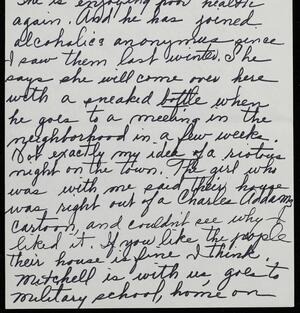 She is enjoying poor health
again. And he has joined
alcoholics anonymus since
I saw them last winter. She
says she will come over here
with a sneaked bottle when
he goes to a meeting in the
neighborhood in a few weeks
Not exactly my idea of a riotous
night on the town. The girl who
was with me said their house
was right out of a Charles Addams
cartoon, and couldn't see why I
liked it. If you like the people
their house is fine I think.
Mitchell is with us, goes to
military school, home on